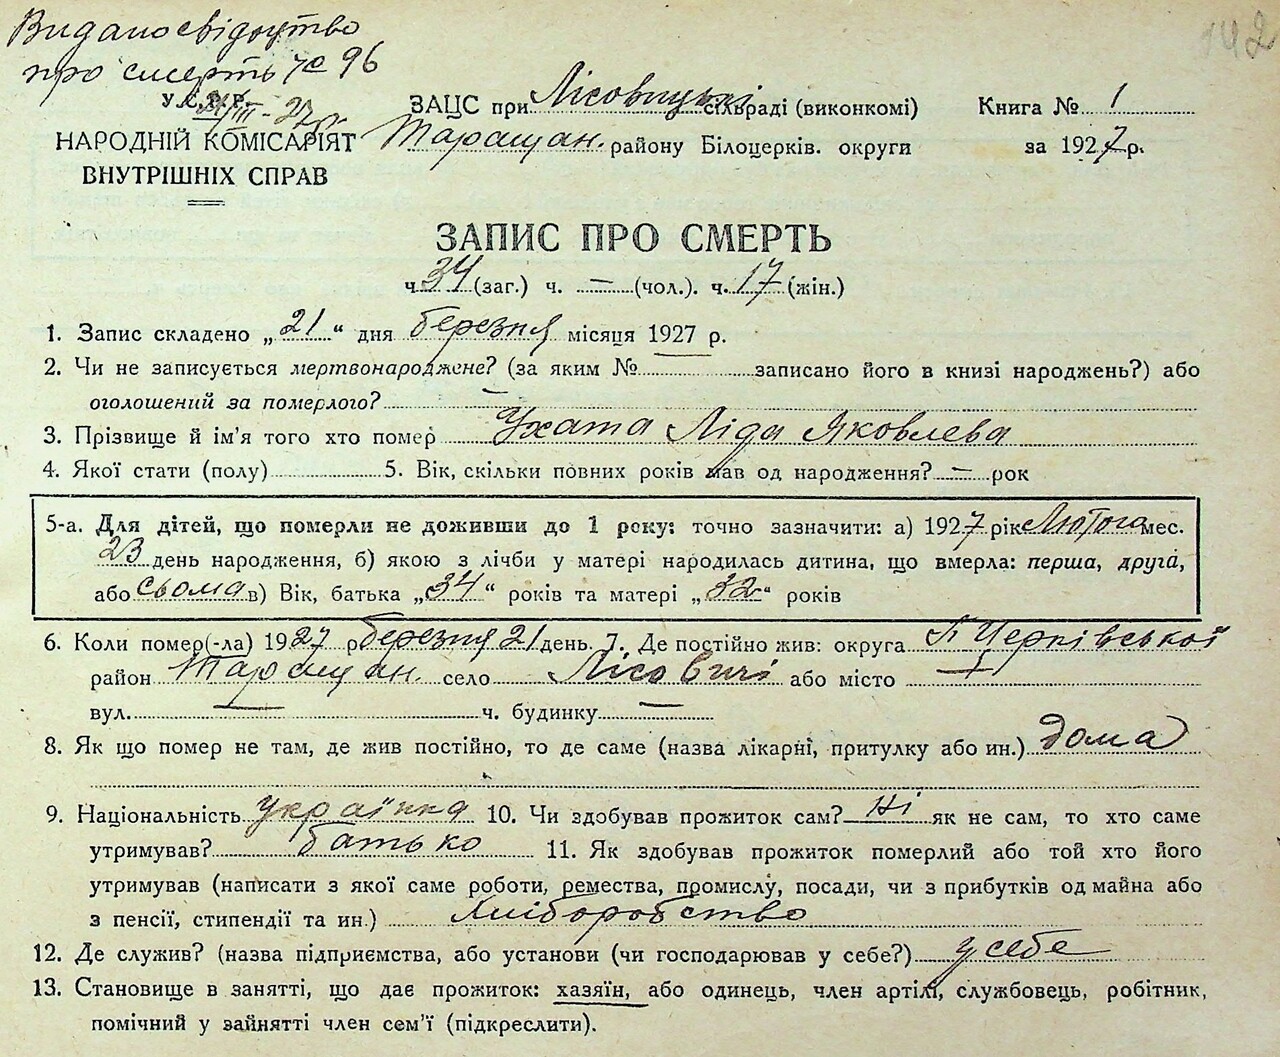 Видано свідоцтво
про смерть № 96
142
У.С.Р.Р. ЗАЦС при Лісовицькі сільраді (виконкомі) Книга № 1
21/III-27 р.
НАРОДНІЙ КОМІСАРІЯТ Таращан. району Білоцерків. округи за 1927 р.
ВНУТРІШНІХ СПРАВ
ЗАПИС ПРО СМЕРТЬ
ч. 34 (заг.) ч. — (чол.). ч. 17 (жін.)
1. Запис складено „21“ дня березня місяця 1927 р.
2. Чи не записується мертвонароджене? (за яким № записано його в книзі народжень?) або
оголошений за померлого? —
3. Прізвище й ім’я того хто помер Ухата Ліда Яковлева
4. Якої стати (полу) 5. Вік, скільки повних років мав од народження? — рок
5-а. Для дітей, що померли не доживши до 1 року: точно зазначити: а) 1927 рік Лютога мес.
23 день народження, б) якою з лічби у матері народилась дитина, що вмерла: перша, друга,
або сьома в) Вік, батька „34“ років та матері „32“ років
6. Коли помер(-ла) 1927 р березня 21 день. 7. Де постійно жив: округа Б Черківської
район Таращан. село Лісовичі або місто —
вул. — ч. будинку —
8. Як що помер не там, де жив постійно, то де саме (назва лікарні, притулку або ин.) дома
9. Національність українка 10. Чи здобував прожиток сам? ні як не сам, то хто саме
утримував? батько 11. Як здобував прожиток померлий або той хто його
утримував (написати з якої саме роботи, ремества, промислу, посади, чи з прибутків од майна або
з пенсії, стипендії та ин.) Хліборобство
12. Де служив? (назва підприємства, або установи (чи господарював у себе?) у себе
13. Становище в занятті, що дає прожиток: хазяїн, або одинець, член артілі, службовець, робітник,
помічний у зайнятті член сем’ї (підкреслити).